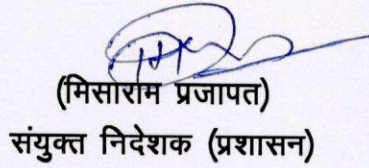 (मिसाराम प्रजापत)
संयुक्त निदेशक (प्रशासन)